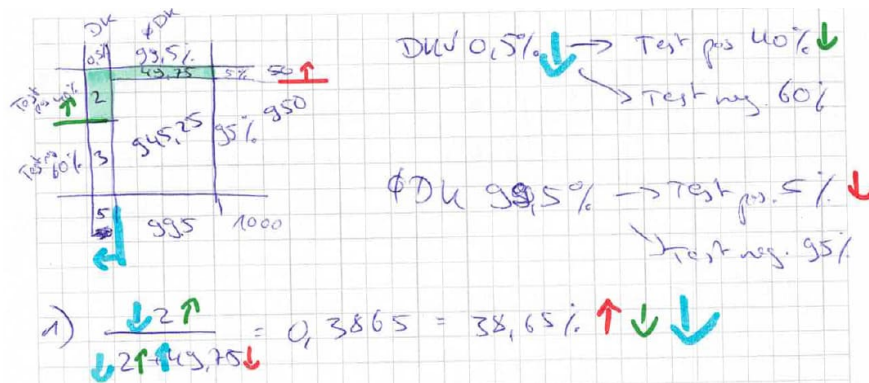 DK ¢DK
0,5% 99,5%
49,75 5% 50
Test pos 40% 2
950
945,25 95%
Test neg 60% 3
5 995 1000
DK✓ 0,5% → Test pos 40%
↘ Test neg. 60%
¢DK 99,5% → Test pos. 5%
↘ Test neg. 95%
1) 2 / 2 + 49,75 = 0,3865 = 38,65%